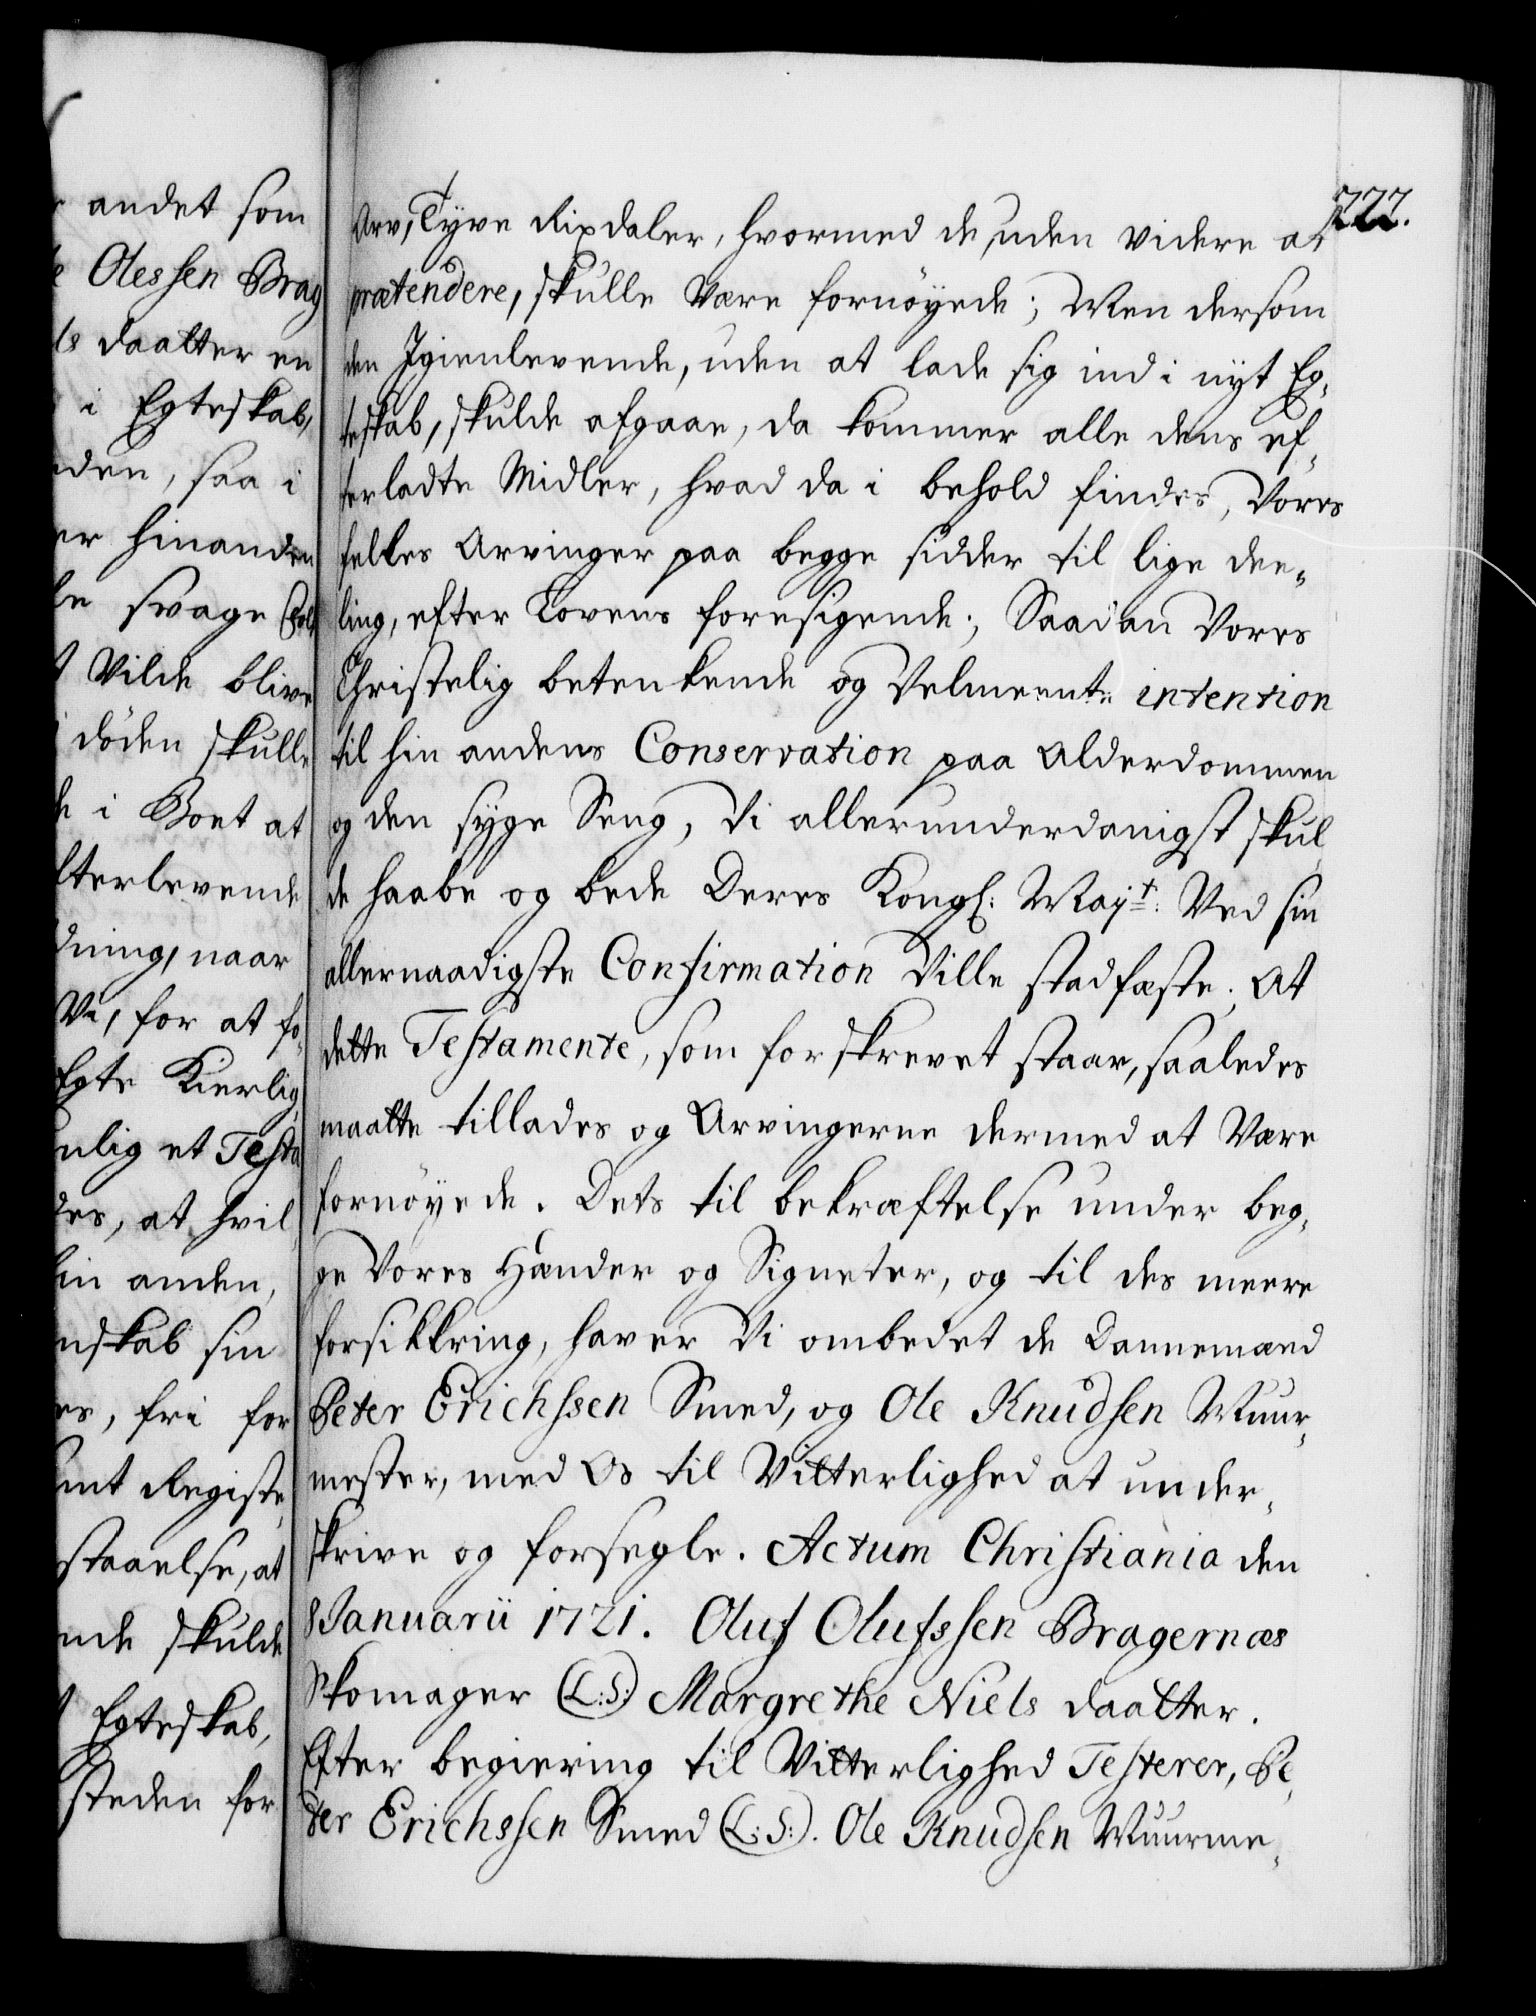 andet som
Olessen Brag
daatter en
i Egteskab,
den, saa i
er hinanden
svage
Vilde blive
döden skulle
i Boet at
fterlevende
dning, naar
Vi, for at fo¸
Egte Kierlig¸
nlig et Testa
des, at hvil¸
hin anden,
nskab sin
es, fri for
mt Registe¸
staaelse, at
nde skulde
Egteskab,
steden for
222.
Arv, Tyve Rixdaler, hvormed de, uden videre at
prætendere, skulle være fornöyede; Men dersom
den Igienlevende, uden at lade sig ind i nyt Eg¸
teskab, skulde afgaae, da kommer alle dens ef¸
terladte Midler, hvad da i behold findes, Vores
felles Arvinger paa begge sidder til lige dee¸
ling, efter Lovens foresigende; Saadan Vores
Christelig betenkende og Velmeente intention
til hin andens Conservation paa Alderdommen
og den syge Seng, Vi allerunderdanigst skul¸
de haabe og bede Deres Kongl. Mayt. Ved sin
allernaadigste Confirmation Ville stadfæste; At
dette Testamente, som forskrevet staar, saaledes
maatte tillades og Arvingerne dermed at Være
fornöyede. Dets til bekræftelse under beg¸
ge Vores Hænder og Signeter, og til des meere
forsikkring, haver Vi ombedet de Dannemænd
Peter Erichssen Smed, og Ole Knudsen Muur¸
mester, med Os til Vitterlighed at under¸
skrive og forsegle. Actum Christiania den
8 Januarii 1721. Oluf Olufssen Bragernæs
Skomager (L:S:) Margrethe Niels daatter.
Efter begiering til Vitterlighed Testerer, Pe¸
ter Erichssen Smed (L:S:). Ole Knudsen Muurme¸